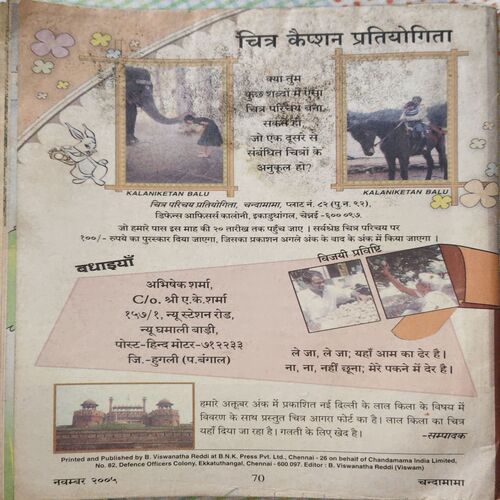 चित्र कैप्शन प्रतियोगिता
क्या तुम
कुछ शब्दों में ऐसा
चित्र परिचय बना
सकते हो,
जो एक दूसरे से
संबंधित चित्रों के
अनुकूल हो?
KALANIKETAN BALU
KALANIKETAN BALU
चित्र परिचय प्रतियोगिता, चन्दामामा, प्लाट नं. ८२ (पु.न. ९२),
डिफेन्स आफिसर्स कालोनी, इकाडुथांगल, चेन्नई -६०० ०९७.
जो हमारे पास इस माह की २० तारीख तक पहुँच जाए । सर्वश्रेष्ठ चित्र परिचय पर
१००/- रुपये का पुरस्कार दिया जाएगा, जिसका प्रकाशन अगले अंक के बाद के अंक में किया जाएगा ।
बधाइयाँ
अभिषेक शर्मा,
C/o. श्री ए.के.शर्मा
१५७/१, न्यू स्टेशन रोड,
न्यू घमाली बाड़ी,
पोस्ट-हिन्द मोटर-७१२२३३
जि.-हुगली (प.बंगाल)
विजयी प्रविष्टि
ले जा, ले जा; यहाँ आम का ढेर है।
ना, ना, नहीं छूना; मेरे पकने में देर है।
हमारे अक्तूबर अंक में प्रकाशित नई दिल्ली के लाल किला के विषय में
विवरण के साथ प्रस्तुत चित्र आगरा फोर्ट का है। लाल किला का चित्र
यहाँ दिया जा रहा है। गलती के लिए खेद है।
-सम्पादक
Printed and Published by B. Viswanatha Reddi at B.N.K. Press Pvt. Ltd., Chennai - 26 on behalf of Chandamama India Limited,
No. 82, Defence Officers Colony, Ekkatuthangal, Chennai - 600 097. Editor : B. Viswanatha Reddi (Viswam)
नवम्बर २००५
70
चन्दामामा